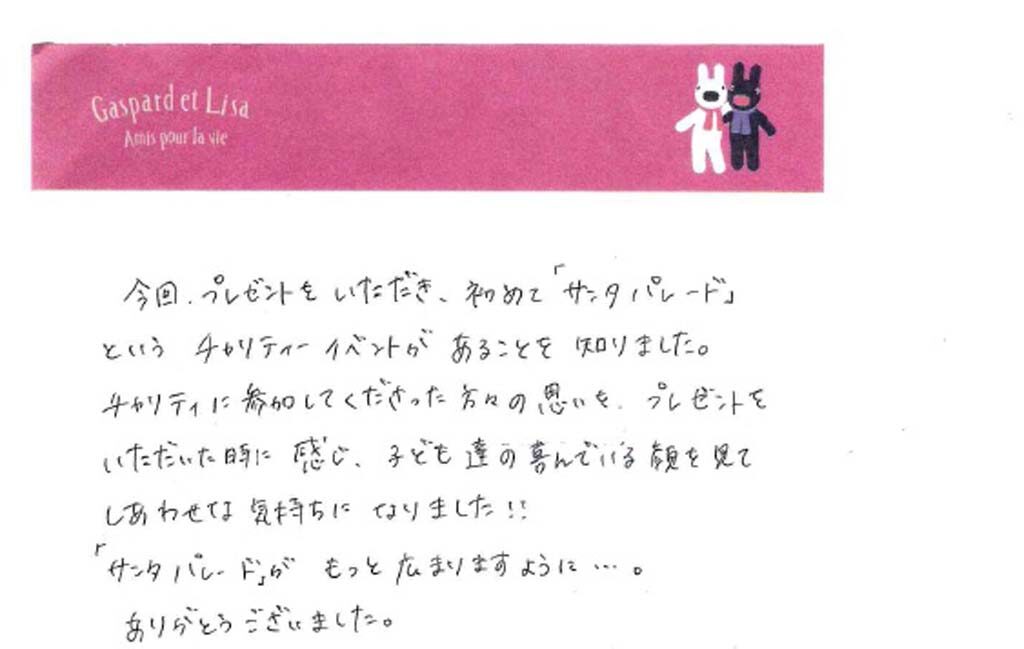 Gaspard et Lisa
Amis pour la vie
今回、プレゼントをいただき、初めて「サンタパレード」
という チャリティーイベントが あることを 知りました。
チャリティに参加してくださった方々の思いを、プレゼントを
いただいた時に 感じ、子ども達の喜んでいる顔を見て
しあわせな 気持ちに なりました!!
「サンタパレード」が もっと広まりますように…。
ありがとうございました。